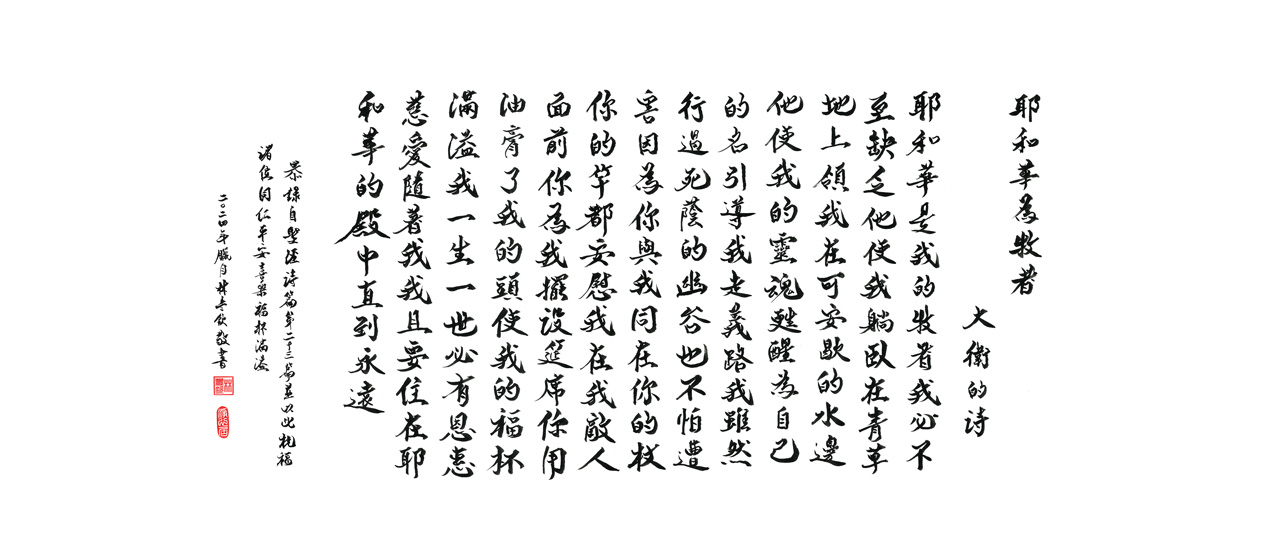 耶和華為牧者
大衛的詩
耶和華是我的牧者我必不
至缺乏他使我躺臥在青草
地上領我在可安歇的水邊
他使我的靈魂甦醒為自己
的名引導我走義路我雖然
行過死蔭的幽谷也不怕遭
害因為你與我同在你的杖
你的竿都安慰我在我敵人
面前你為我擺設筵席你用
油膏了我的頭使我的福杯
滿溢我一生一世必有恩惠
慈愛隨著我我且要住在耶
和華的殿中直到永遠
恭錄自聖經詩篇第二十三篇並以此祝福
諸位同仁平安喜樂福杯滿溢
二〇二四年臘月 敬書